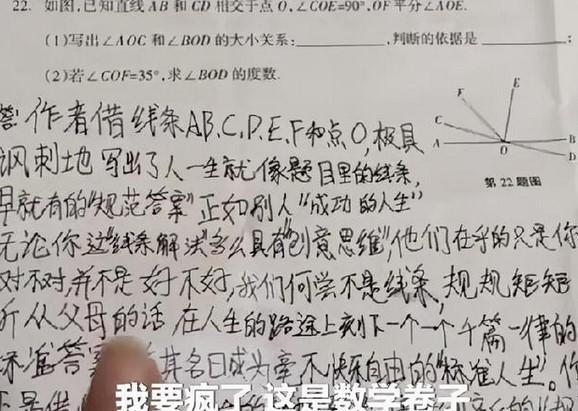 22. 如图,已知直线 AB 和 CD 相交于点 O,∠COE=90°,OF 平分∠AOE.
(1)写出∠AOC 和∠BOD 的大小关系:____________,判断的依据是____________;
(2)若∠COF=35°,求∠BOD 的度数.
答:作者借线条AB.C.D.E.F和点O,极具
讽刺地写出了人一生就像题目里的线条,
早就有的"规范答案"正如别人"成功的人生"
无论你这"线条解法"多么具有"创意思维",他们在乎的只是你
对不对,并不是好不好,我们何尝不是线条,规规矩矩
听从父母的话 在人生的路途上刻下一个一个千篇一律的
标准答案 其名曰成为牵 不快乐自由的"标准人生"。你
F
E
C
A
O
B
D
第 22 题图
我要疯了 这是数学卷子